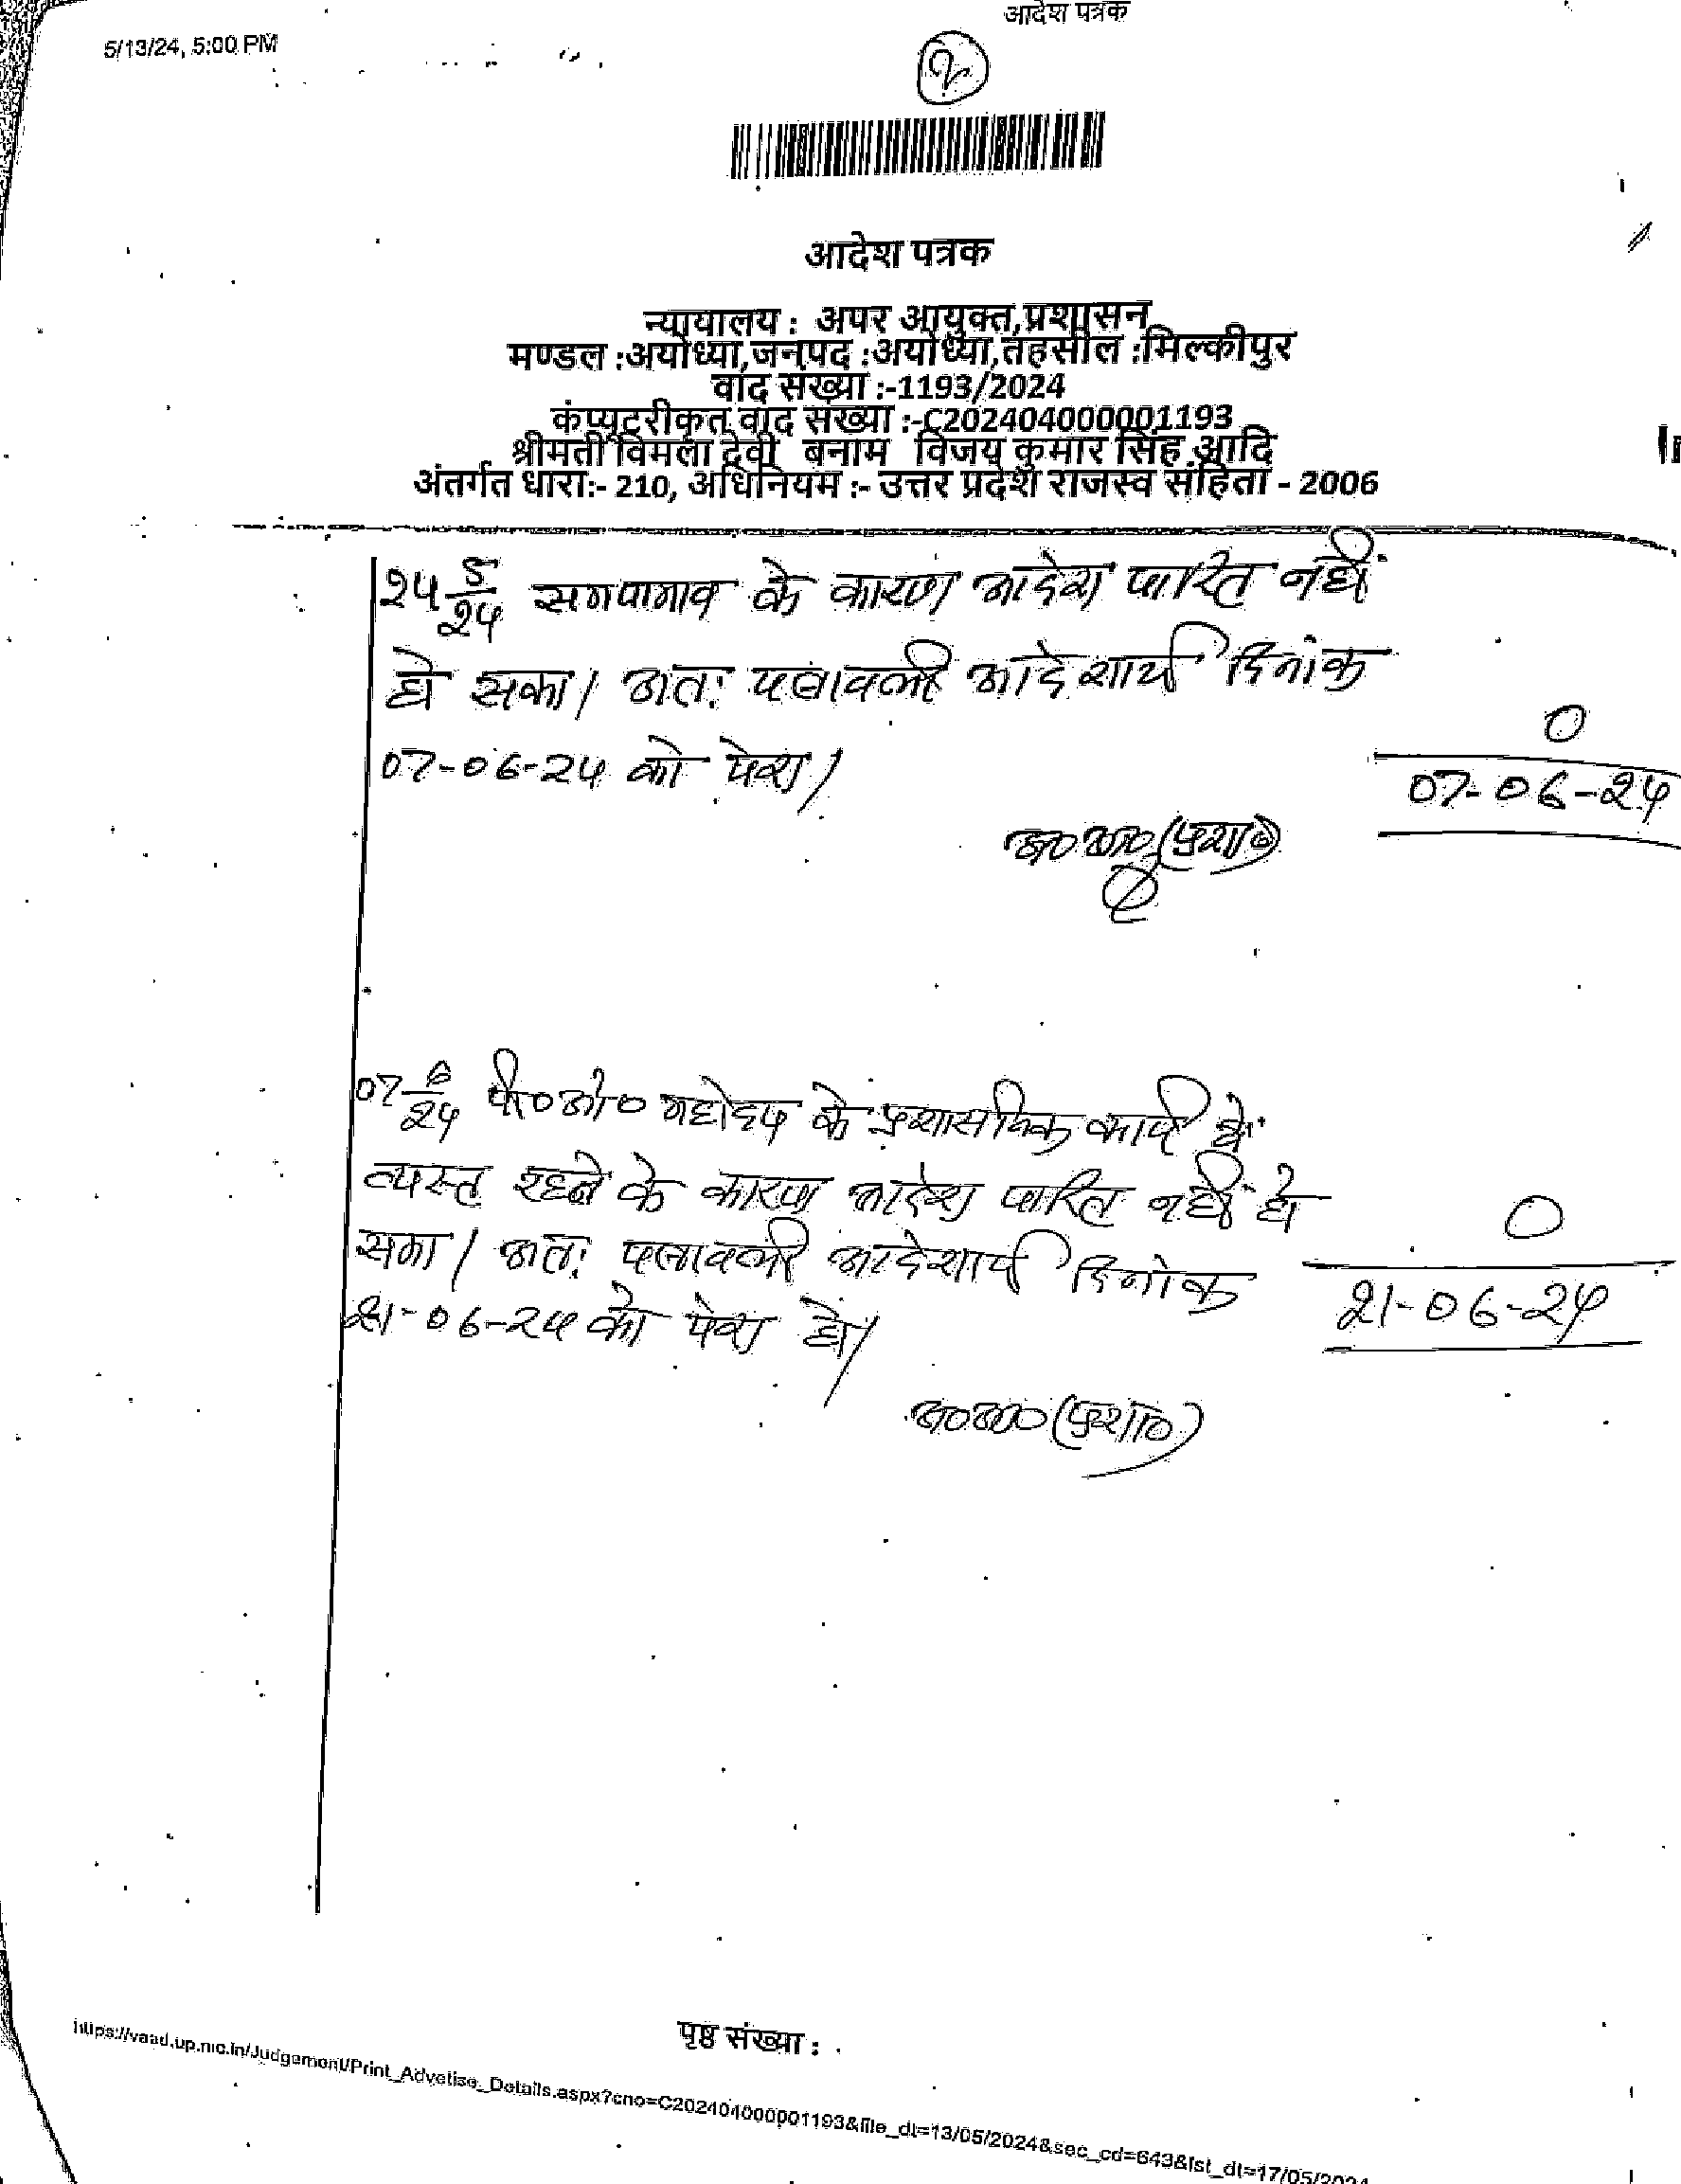 आदेश पत्रक
5/13/24, 5:00 PM
2
आदेश पत्रक
न्यायालय : अपर आयुक्त,प्रशासन
मण्डल :अयोध्या,जनपद :अयोध्या,तहसील :मिल्कीपुर
वाद संख्या :-1193/2024
कंप्यूटरीकृत वाद संख्या :-C202404000001193
श्रीमती विमला देवी बनाम विजय कुमार सिंह आदि
अंतर्गत धारा:- 210, अधिनियम :- उत्तर प्रदेश राजस्व संहिता - 2006
24 5/24 समयाभाव के कारण आदेश पारित नहीं
हो सका। अतः पत्रावली आदेशार्थ दिनांक
07-06-24 को पेश।
0
07-06-24
अ0आ0(प्रशा0)
07 6/24 पी0ओ0 महोदय के प्रशासनिक कार्य में
व्यस्त रहने के कारण आदेश पारित नहीं हो
सका। अतः पत्रावली आदेशार्थ दिनांक
21-06-24 को पेश हो।
0
21-06-24
अ0आ0(प्रशा0)
पृष्ठ संख्या :
https://vaad.up.nic.in/Judgement/Print_Advetise_Details.aspx?cno=C202404000001193&file_dt=13/05/2024&sec_cd=643&lst_dt=17/05/2024